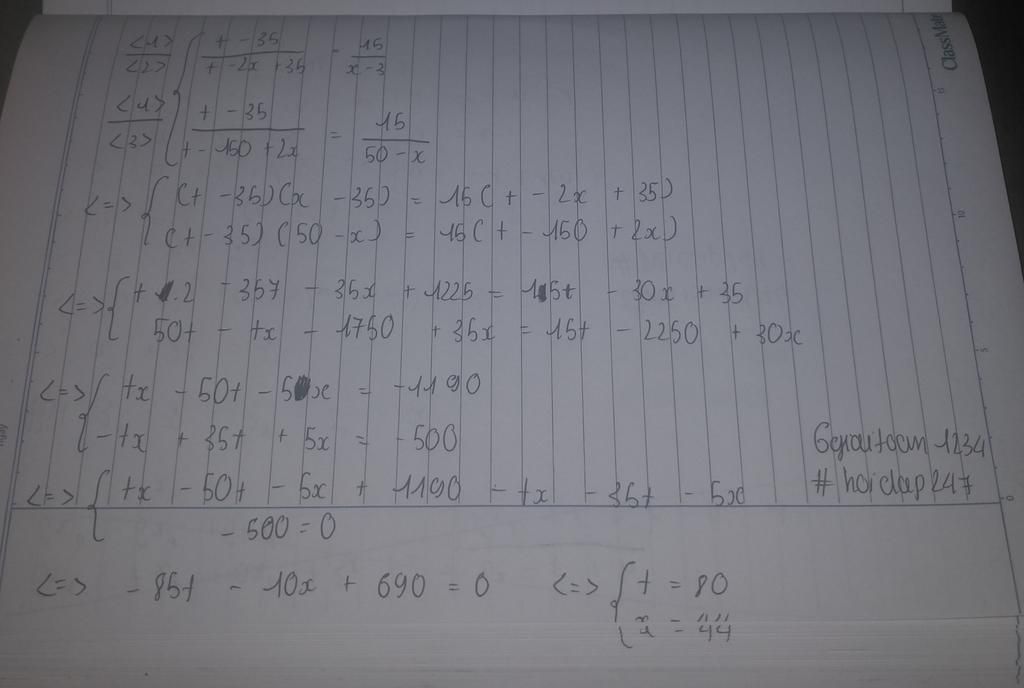 ClassMate
<1>/<2> { (t - 35)/(t - 2x + 35) = 15/(x - 3
<1>/<3> { (t - 35)/(t - 150 + 2x) = 15/(50 - x)
<=> { (t - 35)(x - 35) = 15(t - 2x + 35)
(t - 35)(50 - x) = 15(t - 150 + 2x)
<=> { t .2 - 357 - 35x + 1225 = 15t - 30x + 35
50t - tx - 1750 + 35x = 15t - 2250 + 30x
<=> { tx - 50t - 5x = -1190
-tx + 35t + 5x = -500
<=> { tx - 50t - 5x + 1190 - tx - 35t - 5x
- 500 = 0
<=> - 85t - 10x + 690 = 0 <=> { t = 80
x = 44
1234
# hoidap247